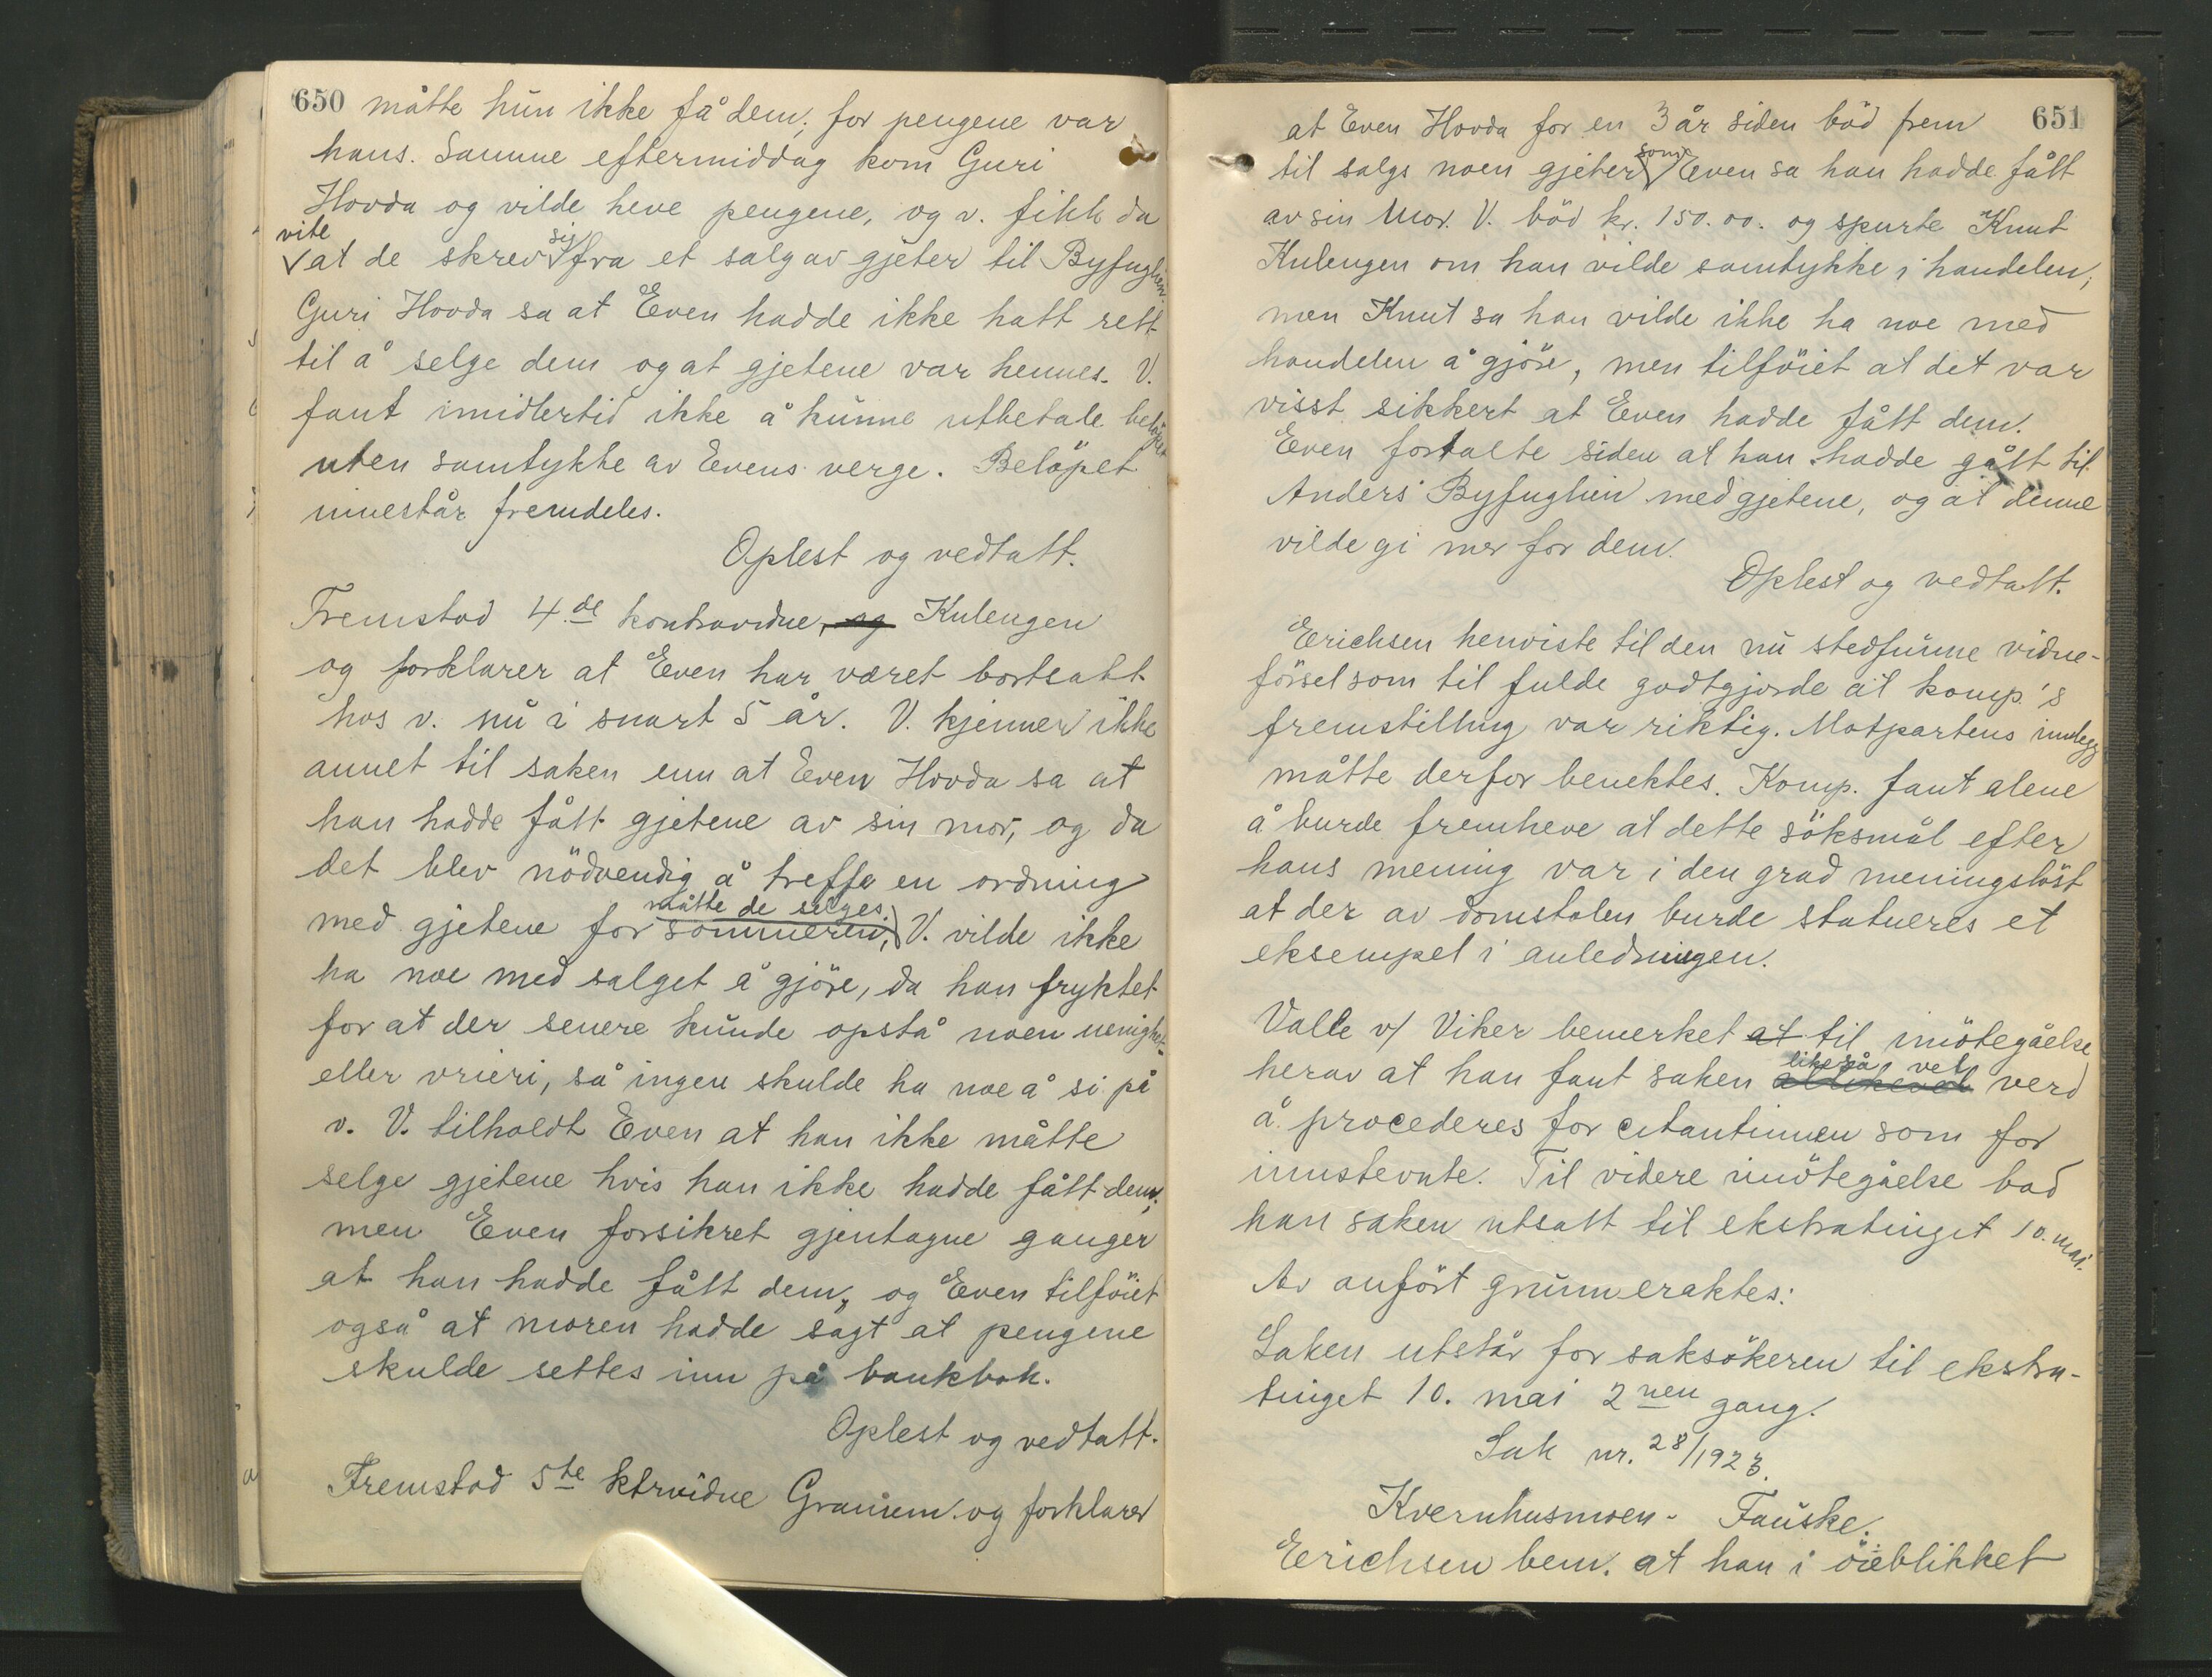 650 måtte hun ikke få dem; for pengene var
hans. Samme eftermiddag kom Guri
Hovda og vilde heve pengene, og v. fikk da
vite at de skrev sig fra et salg av gjeter til Byfuglien.
Guri Hovda sa at Even hadde ikke hatt rett
til å selge dem og at gjetene var hennes. V.
fant imidlertid ikke å kunne utbetale beløpet
uten samtykke av Evens verge. Beløpet
innestår fremdeles.
Oplest og vedtatt.
Fremstod 4.de kontravidne, og Kulengen
og forklarer at Even har været bortsatt
hos v. nu i snart 5 år. V. kjenner ikke
annet til saken enn at Even Hovda sa at
han hadde fått gjetene av sin mor, og da
det blev nödvendig å treffe en ordning
med gjetene for sommeren, måtte de selges. V. vilde ikke
ha noe med salget å gjöre, da han fryktet
for at der senere kunde opstå noen uenighet
eller vrieri, så ingen skulde ha noe å si på
v. V. tilholdt Even at han ikke måtte
selge gjetene hvis han ikke hadde fått dem;
men Even forsikret gjentagne ganger
at han hadde fått dem, og Even tilföiet
også at moren hadde sagt at pengene
skulde settes inn på bankbok.
Oplest og vedtatt.
Fremstod 5te ktrvidne Granum og forklarer
651
at Even Hovda for en 3 år siden böd frem
til salgs noen gjeter som Even sa han hadde fått
av sin Mor. V. böd kr. 150.00. og spurte Knut
Kulengen om han vilde samtykke i handelen;
men Knut sa han vilde ikke ha noe med
handelen å gjöre, men tilföiet at det var
visst sikkert at Even hadde fått dem.
Even fortalte siden at han hadde gått til
Anders Byfuglien med gjetene, og at denne
vilde gi mer for dem.
Oplest og vedtatt.
Erichsen henviste til den nu stedfunne vidne-
försel som til fulde godtgjorde at komp.'s
fremstilling var riktig. Motpartens innlegg
måtte derfor benektes. Komp. fant alene
å burde fremheve at dette söksmål efter
hans mening var i den grad meningslöst
at der av domstolen burde statueres et
eksempel i anledningen.
Valle v/ Viker bemerket at til imötegåelse
herav at han fant saken allikevel likeså vel verd
å procederes for citantinnen som for
innstevnte. Til videre imötegåelse bad
han saken utsatt til ekstratinget 10. mai.
Av anfört grunn eraktes:
Saken utstår for saksökeren til ekstra-
tinget 10. mai 2nen gang.
Sak nr. 28/1923.
Kvernhusmoen - Fauske.
Erichsen bem. at han i öieblikket